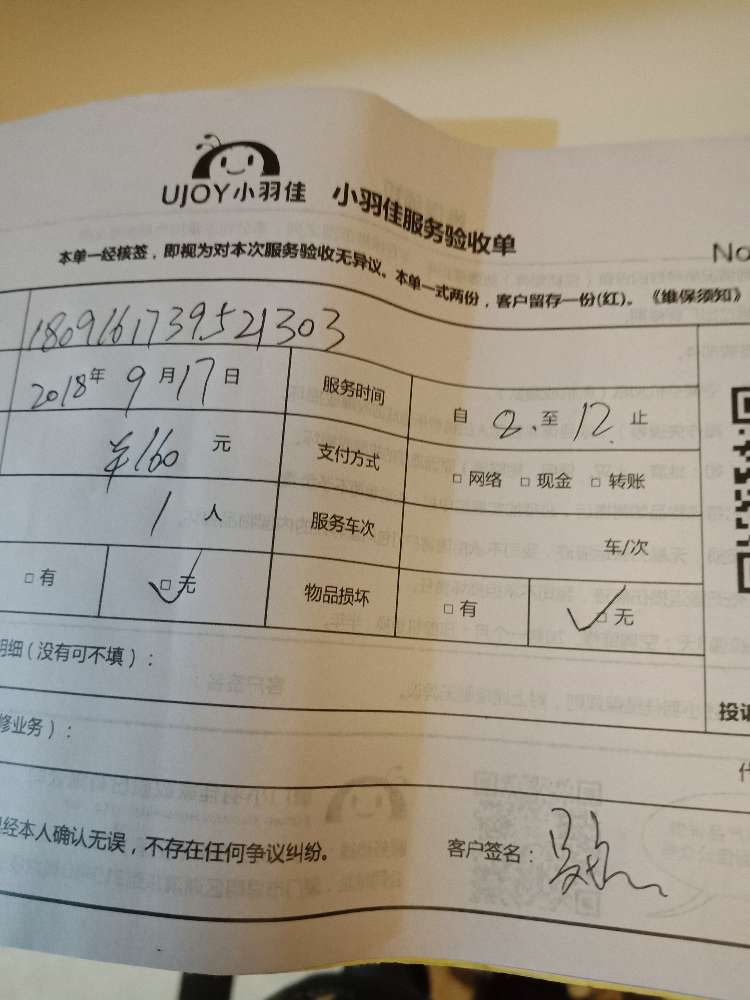 UJOY小羽佳 小羽佳服务验收单
No
本单一经核签，即视为对本次服务验收无异议。本单一式两份，客户留存一份(红)。《维保须知》
180916173952 1303
2018年 9月17日 服务时间 自 8. 至 12. 止
¥160 元 支付方式 □ 网络 □ 现金 □ 转账
1 人 服务车次 车/次
□ 有 □ 无 物品损坏 □ 有 □ 无
明细（没有可不填）：
投诉
修业务）：
经本人确认无误，不存在任何争议纠纷。 客户签名：